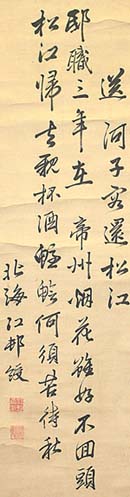 送河子容還松江
邸職三年在 帝州烟花雖好不回頭
松江歸去親杯酒鱸鱠何須苦待秋
北海江邨綬